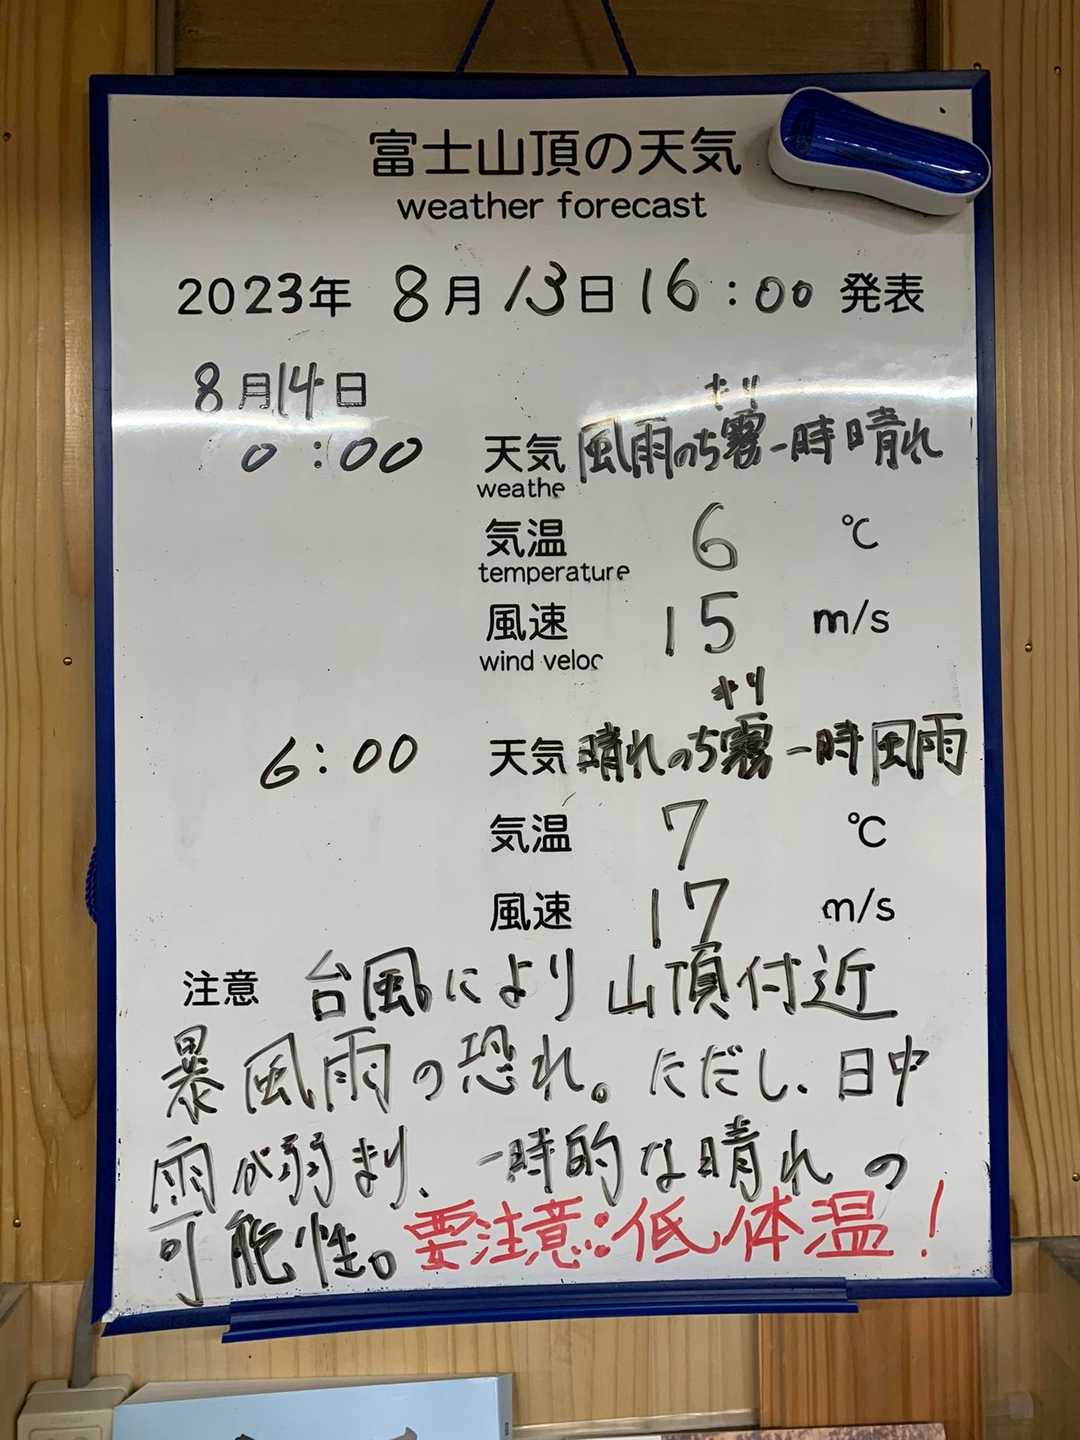 富士山頂の天気
weather forecast
2023年 8月13日16:00 発表
8月14日
キリ
0:00 天気 風雨のち霧一時晴れ
weathe
気温 6 ℃
temperature
風速 15 m/s
wind veloc
キリ
6:00 天気 晴れのち霧一時風雨
気温 7 ℃
風速 17 m/s
注意 台風により山頂付近
暴風雨の恐れ。ただし、日中
雨が弱まり、一時的な晴れの
可能性。要注意:低体温!